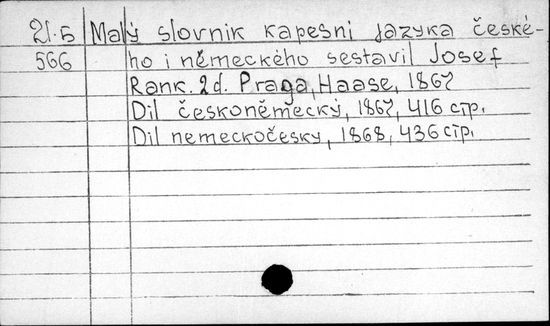 21.5 Malý slovnik kapesni jazyka české-
566 ho i německého sestavil Josef
Rank. 2d. Praga, Haase, 1867
Dil českoněmecký, 1867, 416 стр.
Dil nemeckočesky, 1868, 436 стр.